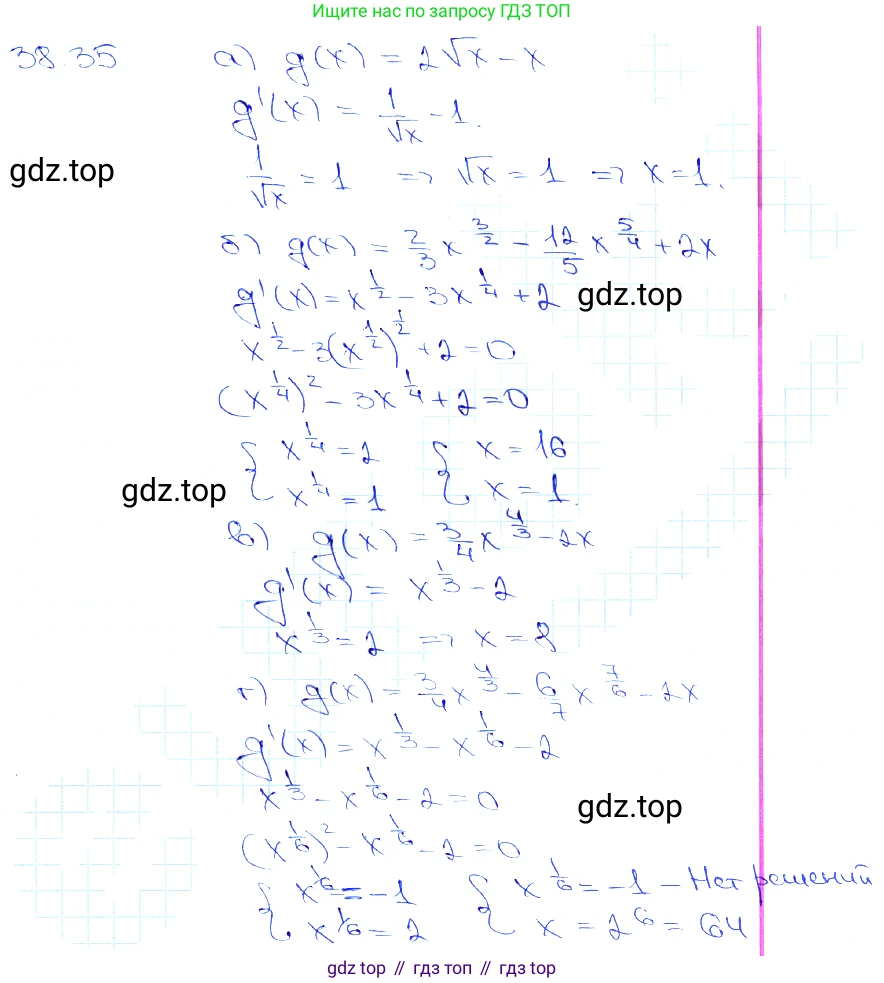 Ищите нас по запросу ГДЗ ТОП
38.35 а) g(x) = 2√x - x
g'(x) = 1/√x - 1.
gdz.top
1/√x = 1 => √x = 1 => x = 1.
б) g(x) = 2/3 x^(3/2) - 12/5 x^(5/4) + 2x
g'(x) = x^(1/2) - 3x^(1/4) + 2
gdz.top
x^(1/2) - 3(x^(1/2))^(1/2) + 2 = 0
(x^(1/4))^2 - 3x^(1/4) + 2 = 0
{ x^(1/4) = 2 { x = 16
x^(1/4) = 1 x = 1.
gdz.top
в) g(x) = 3/4 x^(4/3) - 2x
g'(x) = x^(1/3) - 2
x^(1/3) = 2 => x = 8
г) g(x) = 3/4 x^(4/3) - 6/7 x^(7/6) - 2x
g'(x) = x^(1/3) - x^(1/6) - 2
x^(1/3) - x^(1/6) - 2 = 0
gdz.top
(x^(1/6))^2 - x^(1/6) - 2 = 0
{ x^(1/6) = -1 { x^(1/6) = -1 - Нет решений
x^(1/6) = 2 x = 2^6 = 64
gdz top // гдз топ // gdz top